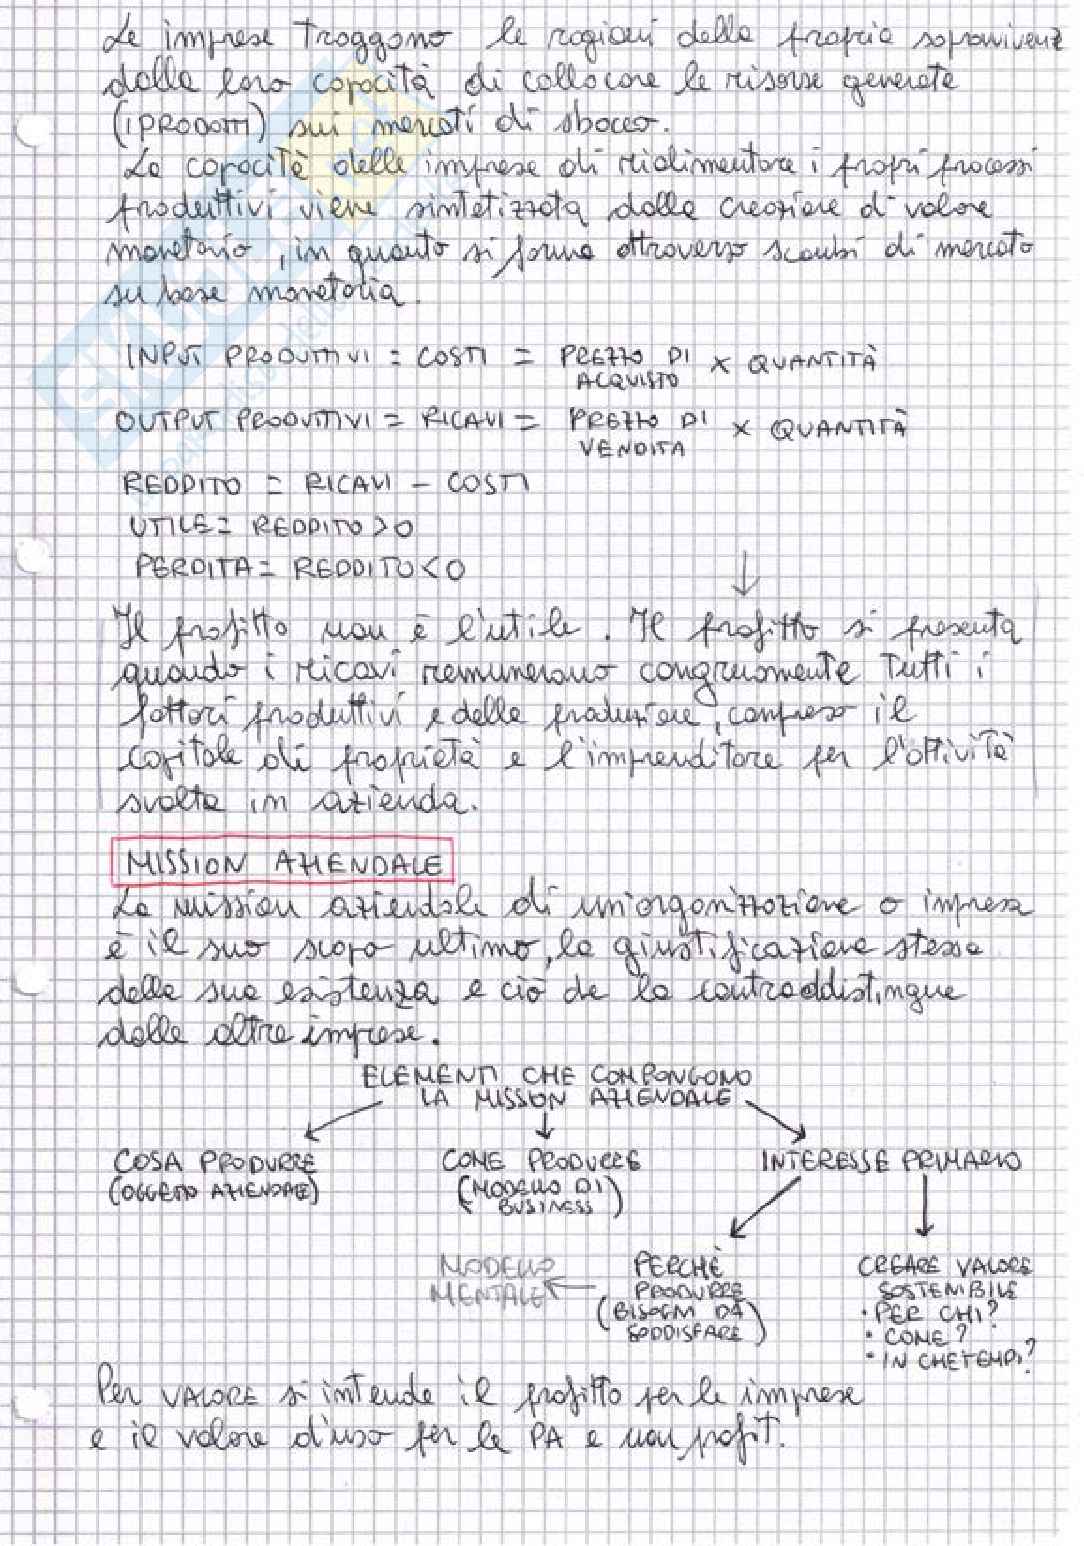 Le imprese traggono le ragioni della propria sopravvivenz
dalla loro capacità di collocare le risorse generate
(I PRODOTTI) sui mercati di sbocco.
La capacità delle imprese di rialimentare i propri processi
produttivi viene sintetizzata dalla creazione di valore
monetario, in quanto si forma attraverso scambi di mercato
su base monetaria.
INPUT PRODUTTIVI = COSTI = PREZZO DI ACQUISTO × QUANTITÀ
OUTPUT PRODUTTIVI = RICAVI = PREZZO DI VENDITA × QUANTITÀ
REDDITO = RICAVI - COSTI
UTILE = REDDITO > 0
PERDITA = REDDITO < 0
Il profitto non è l'utile. Il profitto si presenta
quando i ricavi remunerano congruamente tutti i
fattori produttivi e della produzione, compreso il
capitale di proprietà e l'imprenditore per l'attività
svolta in azienda.
MISSION AZIENDALE
La mission aziendale di un'organizzazione o impresa
è il suo scopo ultimo, la giustificazione stessa
della sua esistenza e ciò che la contraddistingue
dalle altre imprese.
ELEMENTI CHE COMPONGONO
LA MISSION AZIENDALE
COSA PRODURRE
(OGGETTO AZIENDALE)
COME PRODURRE
(MODELLO DI
BUSINESS)
INTERESSE PRIMARIO
MODELLO
MENTALE
PERCHÈ
PRODURRE
(BISOGNI DA
SODDISFARE)
CREARE VALORE
SOSTENIBILE
• PER CHI?
• COME?
• IN CHE TEMPI?
Per VALORE si intende il profitto per le imprese
e il valore d'uso per le PA e non profit.